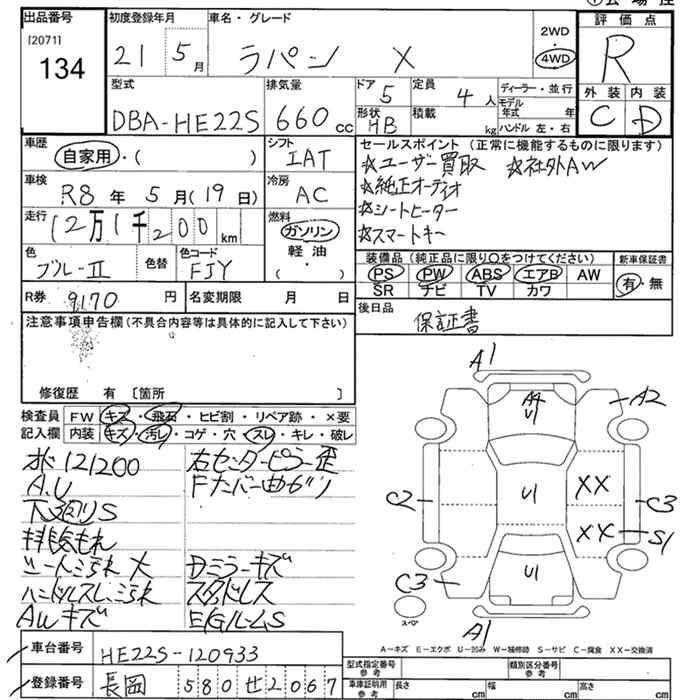 ①会場控
出品番号 初度登録年月 車名・グレード 評価点
[2071]
134
21 5月 ラパン X 2WD 4WD R
外装 内装
C D
型式 排気量 ドア 定員 ディーラー・並行
DBA-HE22S 660 cc 5 4人 モデル年式 年
形状 積載
HB kg ハンドル 左・右
車歴 シフト セールスポイント (正常に機能するものに限ります)
自家用・( ) IAT ☆ユーザー買取 ☆社外AW
☆純正オーディオ
車検 冷房
R8年5月(19日) AC ☆シートヒーター
走行 燃料 ☆スマートキー
12万1千200km ガソリン
軽油
・( )
装備品 (純正品に限り○をつけてください) 新車保証書
色 色替 色コード
ブルーII FJY
PS PW ABS エアB AW 有・無
SR ナビ TV カワ
R券 9170円 名変期限 月 日 後日品
保証書
注意事項申告欄 (不具合内容等は具体的に記入して下さい)
修復歴 有 [箇所 ]
検査員 FW キズ・飛石・ヒビ割・リペア跡・×要
記入欄 内装 キズ・汚レ・コゲ・穴・スレ・キレ・破レ
オド121200 右センターピラー歪
A.U Fナンバー曲ガリ
下廻りS
排気もれ
シート汚れ大 Dミラーキズ
ハンドルスレ、汚れ スタッドレス
AWキズ E/GルームS
A1
A4
U1
A2
C2
U1
XX
C3
XX
S1
C3
U1
A1
スペア
A-キズ E-エクボ U-凹み W-補修跡 S-サビ C-腐食 XX-交換済
車台番号 HE22S-120933
登録番号 長岡 580 せ 2067
型式指定番号 参考 類別区分番号 参考
車庫証明用 参考 長さ cm 幅 cm 高さ cm